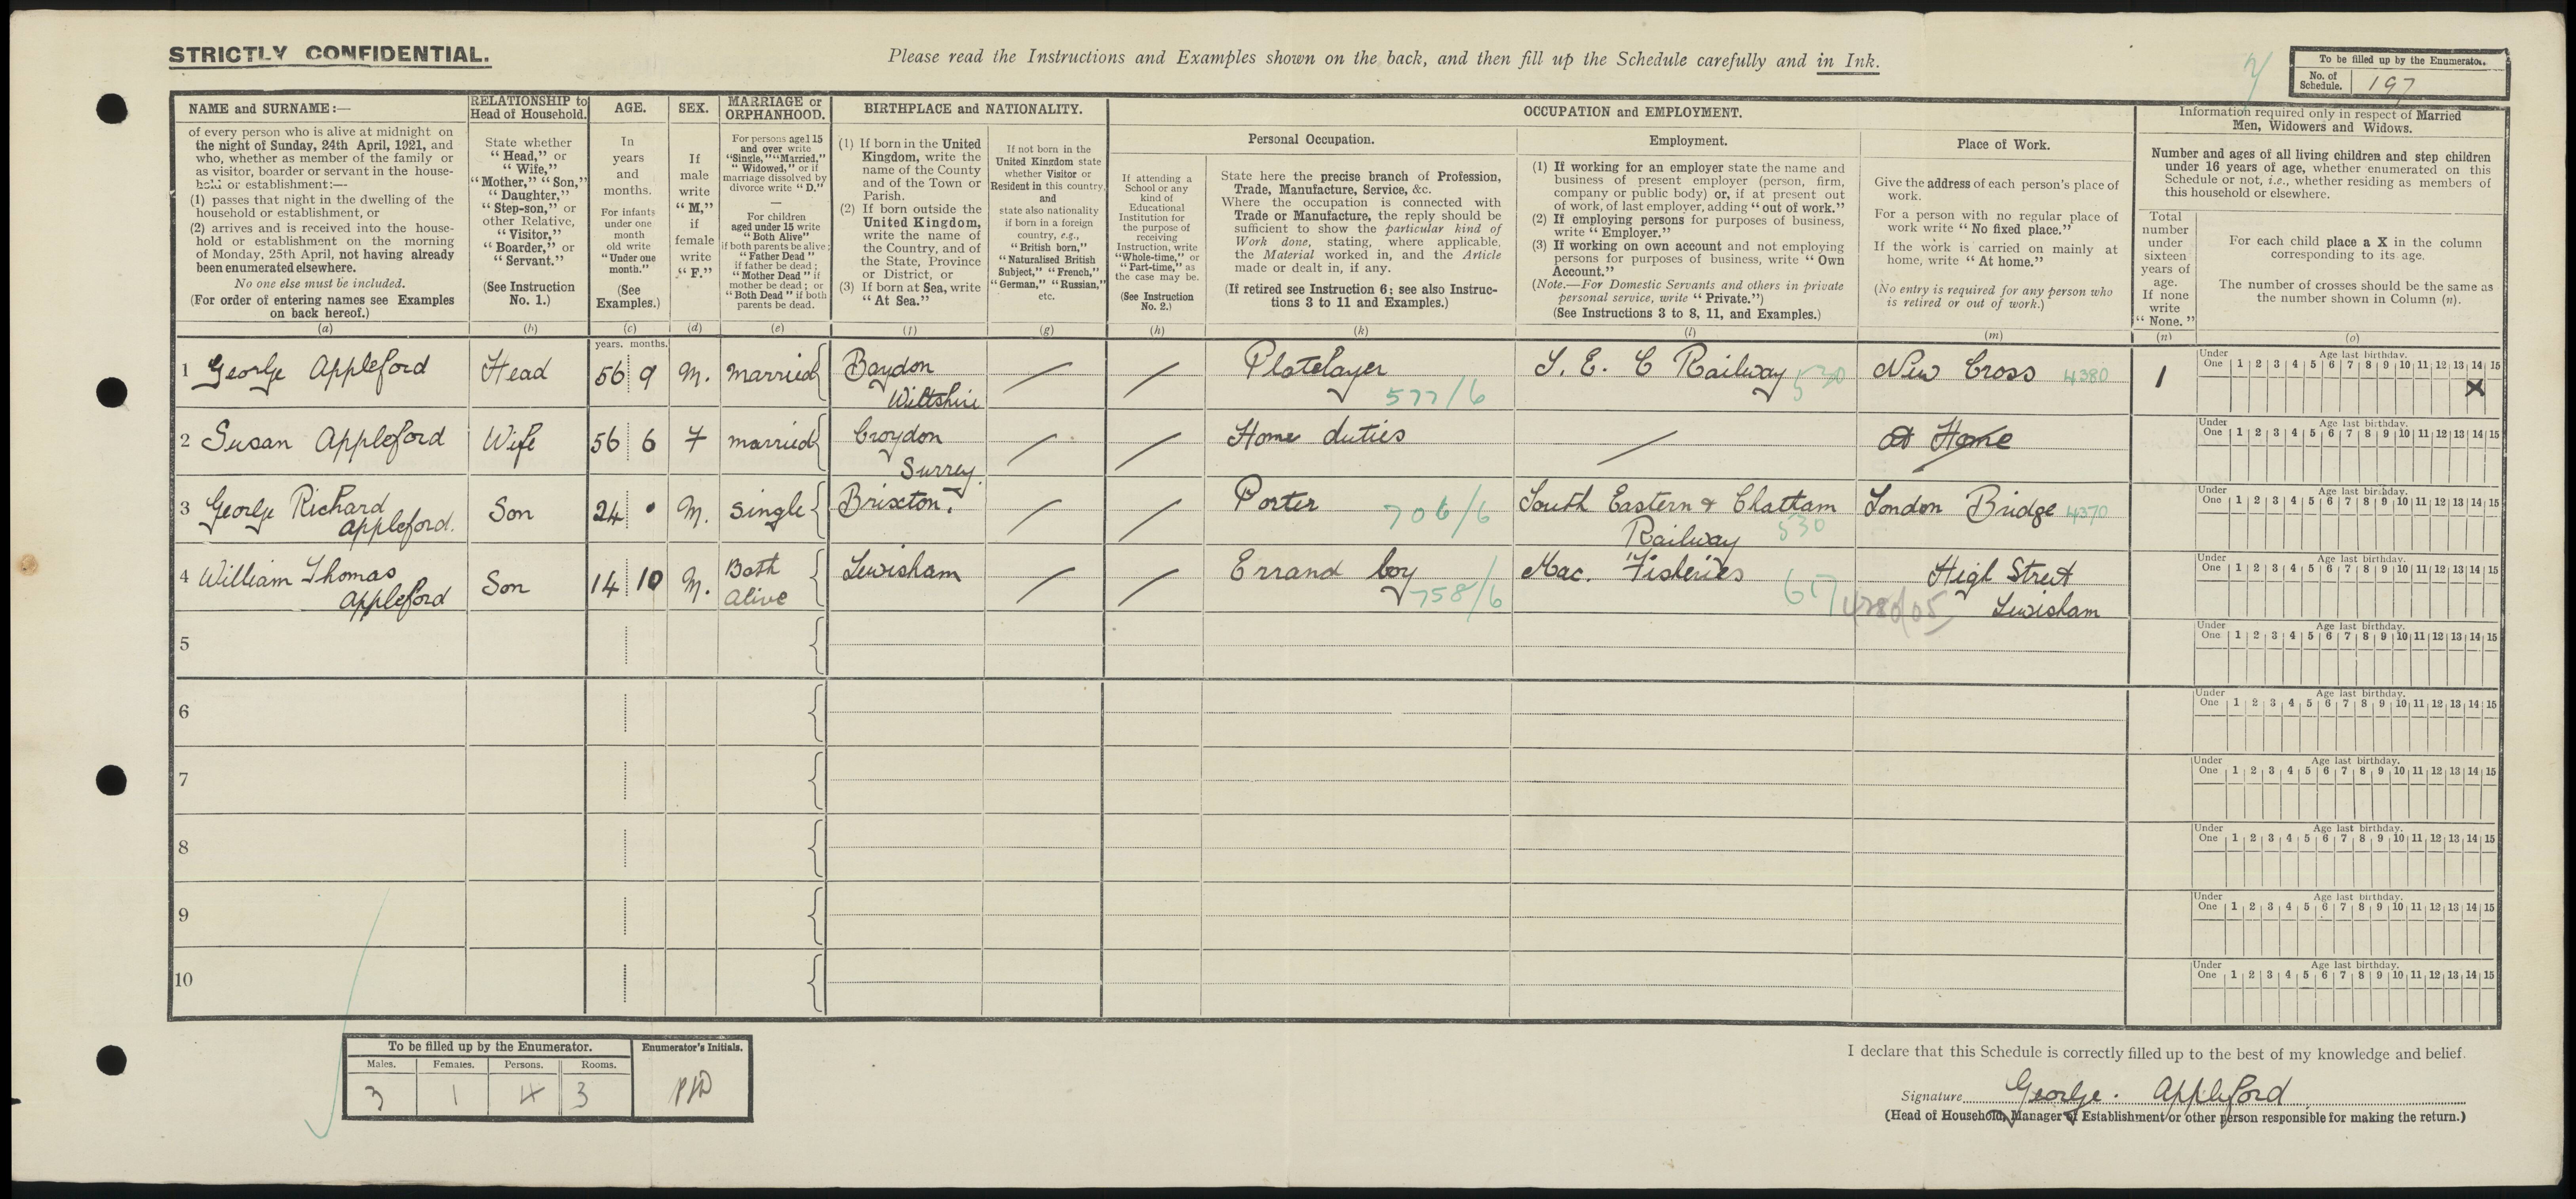 STRICTLY CONFIDENTIAL.
Please read the Instructions and Examples shown on the back, and then fill up the Schedule carefully and in Ink.
To be filled up by the Enumerator.
No. of Schedule. 197
NAME and SURNAME:—
of every person who is alive at midnight on
the night of Sunday, 24th April, 1921, and
who, whether as member of the family or
as visitor, boarder or servant in the house-
hold or establishment:—
(1) passes that night in the dwelling of the
household or establishment, or
(2) arrives and is received into the house-
hold or establishment on the morning
of Monday, 25th April, not having already
been enumerated elsewhere.
No one else must be included.
(For order of entering names see Examples
on back hereof.)
(a)
RELATIONSHIP to
Head of Household.
State whether
"Head," or
"Wife,"
"Mother," "Son,"
"Daughter,"
"Step-son," or
other Relative,
"Visitor,"
"Boarder," or
"Servant."
(See Instruction
No. 1.)
(b)
AGE.
In
years
and
months.
For infants
under one
month
old write
"Under one
month."
(See
Examples.)
(c)
SEX.
If
male
write
"M,"
if
female
write
"F."
(d)
MARRIAGE or
ORPHANHOOD.
For persons aged 15
and over write
"Single," "Married,"
"Widowed," or if
marriage dissolved by
divorce write "D."
—
For children
aged under 15 write
"Both Alive"
if both parents be alive;
"Father Dead"
if father be dead;
"Mother Dead" if
mother be dead; or
"Both Dead" if both
parents be dead.
(e)
BIRTHPLACE and NATIONALITY.
(1) If born in the United
Kingdom, write the
name of the County
and of the Town or
Parish.
(2) If born outside the
United Kingdom,
write the name of
the Country, and of
the State, Province
or District, or
(3) If born at Sea, write
"At Sea."
(f)
If not born in the
United Kingdom state
whether Visitor or
Resident in this country,
and
state also nationality
if born in a foreign
country, e.g.,
"British born,"
"Naturalised British
Subject," "French,"
"German," "Russian,"
etc.
(g)
OCCUPATION and EMPLOYMENT.
Personal Occupation.
If attending a
School or any
kind of
Educational
Institution for
the purpose of
receiving
Instruction, write
"Whole-time," or
"Part-time," as
the case may be.
(See Instruction
No. 2.)
(h)
State here the precise branch of Profession,
Trade, Manufacture, Service, &c.
Where the occupation is connected with
Trade or Manufacture, the reply should be
sufficient to show the particular kind of
Work done, stating, where applicable,
the Material worked in, and the Article
made or dealt in, if any.
(If retired see Instruction 6; see also Instruc-
tions 3 to 11 and Examples.)
(k)
Employment.
(1) If working for an employer state the name and
business of present employer (person, firm,
company or public body) or, if at present out
of work, of last employer, adding "out of work."
(2) If employing persons for purposes of business,
write "Employer."
(3) If working on own account and not employing
persons for purposes of business, write "Own
Account."
(Note.—For Domestic Servants and others in private
personal service, write "Private.")
(See Instructions 3 to 8, 11, and Examples.)
(l)
Place of Work.
Give the address of each person's place of
work.
For a person with no regular place of
work write "No fixed place."
If the work is carried on mainly at
home, write "At home."
(No entry is required for any person who
is retired or out of work.)
(m)
Information required only in respect of Married
Men, Widowers and Widows.
Number and ages of all living children and step children
under 16 years of age, whether enumerated on this
Schedule or not, i.e., whether residing as members of
this household or elsewhere.
Total
number
under
sixteen
years of
age.
If none
write
"None."
(n)
For each child place a X in the column
corresponding to its age.
The number of crosses should be the same as
the number shown in Column (n).
(o)
years. months.
1 George Appleford Head 56 9 M. Married Baydon Wiltshire Platelayer 577/6 S. E. C Railway 530 New Cross 4380 1
Under One Age last birthday. 1 2 3 4 5 6 7 8 9 10 11 12 13 14 15
X
2 Susan Appleford Wife 56 6 F married Croydon Surrey. Home duties at Home
Under One Age last birthday. 1 2 3 4 5 6 7 8 9 10 11 12 13 14 15
3 George Richard Appleford. Son 24 • M. Single Brixton. Porter 706/6 South Eastern & Chattam Railway 530 London Bridge 4370
Under One Age last birthday. 1 2 3 4 5 6 7 8 9 10 11 12 13 14 15
4 William Thomas Appleford Son 14 10 M. Both Alive Lewisham Errand boy 758/6 Mac. Fisheries 617 High Street Lewisham
Under One Age last birthday. 1 2 3 4 5 6 7 8 9 10 11 12 13 14 15
5
Under One Age last birthday. 1 2 3 4 5 6 7 8 9 10 11 12 13 14 15
6
Under One Age last birthday. 1 2 3 4 5 6 7 8 9 10 11 12 13 14 15
7
Under One Age last birthday. 1 2 3 4 5 6 7 8 9 10 11 12 13 14 15
8
Under One Age last birthday. 1 2 3 4 5 6 7 8 9 10 11 12 13 14 15
9
Under One Age last birthday. 1 2 3 4 5 6 7 8 9 10 11 12 13 14 15
10
Under One Age last birthday. 1 2 3 4 5 6 7 8 9 10 11 12 13 14 15
To be filled up by the Enumerator.
Males. Females. Persons. Rooms.
3 1 4 3
Enumerator's Initials.
I declare that this Schedule is correctly filled up to the best of my knowledge and belief.
Signature George. Appleford
(Head of Household, Manager of Establishment or other person responsible for making the return.)